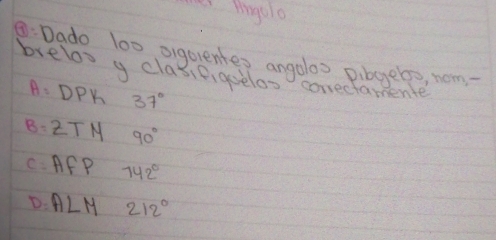 Angulo
①: Dado los siguientes angulos Dibujelos, nom-
brelos y clasifiquelos correctamente
A: DPK 37°
B: ZTM 90°
C: AFP 142°
D: ALM 212°